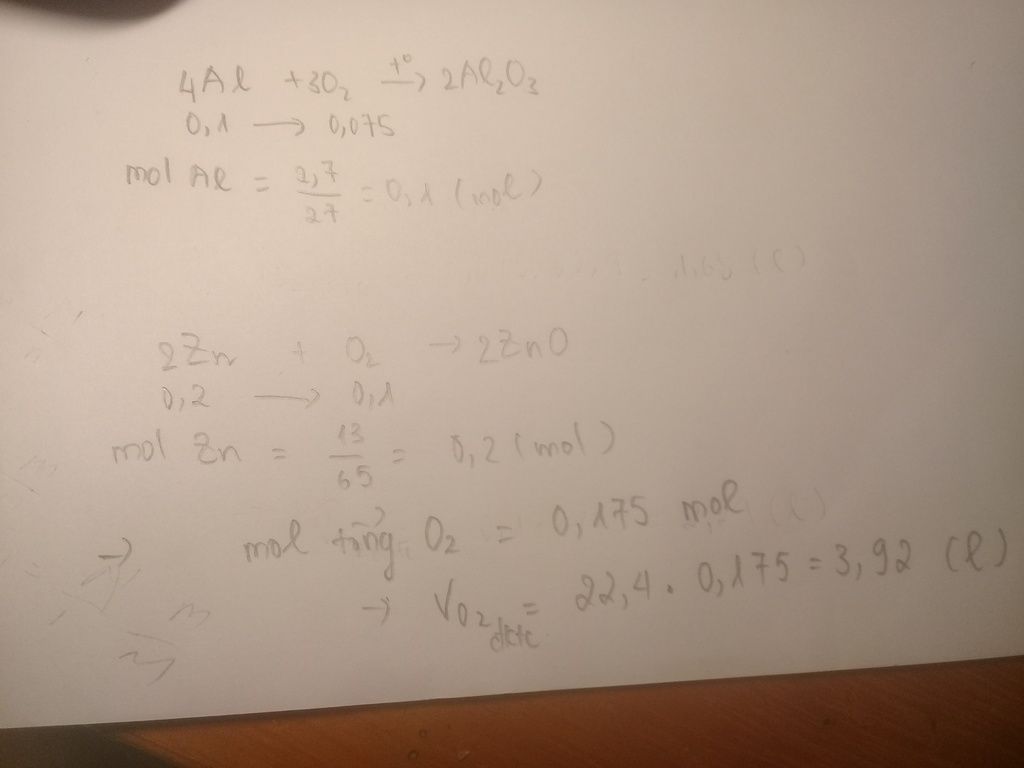 4Al + 3O₂ t°→ 2Al₂O₃
0,1 → 0,075
mol Al = 2,7/27 = 0,1 (mol)
2Zn + O₂ → 2ZnO
0,2 → 0,1
mol Zn = 13/65 = 0,2 (mol)
→ mol tổng O₂ = 0,175 mol
→ VO₂ đktc = 22,4 . 0,175 = 3,92 (l)